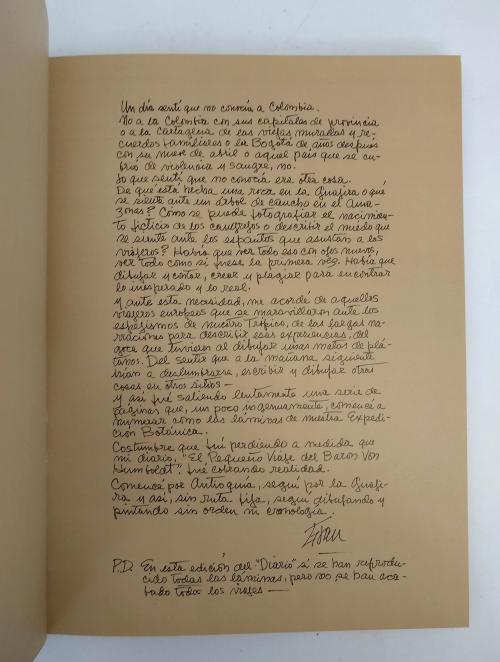 Un día sentí que no conocía a Colombia.
No a la Colombia con sus capitales de provincia
o a la Cartagena de las viejas murallas y re-
cuerdos familiares o la Bogotá de años después
con su nueve de abril o aquel país que se cu-
brió de violencia y sangre, no.
Lo que sentí que no conocía era otra cosa.
De qué está hecha una roca en la Guajira o qué
se siente ante un árbol de caucho en el Ama-
zonas? Cómo se puede fotografiar el nacimien-
to ficticio de los contrafos o describir el miedo que
se siente ante los espantos que asustan a los
viajeros? Había que ver todo eso con ojos nuevos,
ver todo como si fuese la primera vez. Había que
dibujar y contar, crear y plagiar para encontrar
lo inesperado y lo real.
Y ante esta necesidad, me acordé de aquellos
viajeros europeos que se maravillaron ante los
espejismos de nuestro Trópico, de las largas na-
rraciones para describir esas experiencias, del
goce que tuvieron al dibujar unas matas de plá-
tanos. Del sentir que a la mañana siguiente
irían a deslumbrarse, escribir y dibujar otras
cosas en otros sitios —
Y así fué saliendo lentamente una serie de
páginas que, un poco ingenuamente, comencé a
numerar como las láminas de nuestra Expedi-
ción Botánica.
Costumbre que fuí perdiendo a medida que
mi diario, "El Pequeño Viaje del Baron Von
Humboldt" fué cobrando realidad.
Comencé por Antioquia, seguí por la Guaji-
ra y así, sin ruta fija, seguí dibujando y
pintando sin orden ni cronología.
P.D. En esta edición del "Diario" si se han reprodu-
cido todas las láminas, pero no se han aca-
bado todos los viajes —